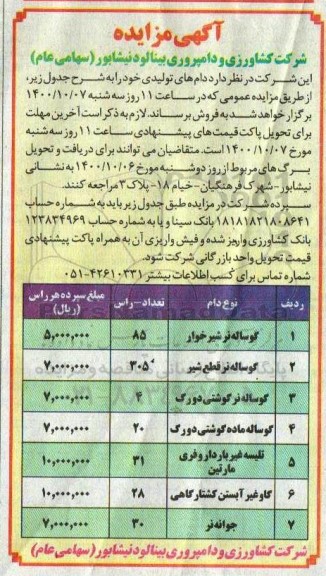 آگهی مزایده
شرکت کشاورزی و دامپروری بینالود نیشابور (سهامی عام)
این شرکت در نظر دارد دام‌های تولیدی خود را به شرح جدول زیر،
از طریق مزایده عمومی که در ساعت ۱۱ روز سه شنبه ۱۴۰۰/۱۰/۰۷
برگزار خواهد شد به فروش برساند. لازم به ذکر است آخرین مهلت
برای تحویل پاکت قیمت های پیشنهادی ساعت ۱۱ روز سه شنبه
مورخ ۱۴۰۰/۱۰/۰۷ است. متقاضیان می توانند برای دریافت و تحویل
برگ های مربوط از روز دوشنبه مورخ ۱۴۰۰/۱۰/۰۶ به نشانی
نیشابور-شهرک فرهنگیان-خیام ۱۸-پلاک ۳ مراجعه کنند.
سپرده شرکت در مزایده طبق جدول زیر باید به شماره حساب
۱۸۱۸۱۸۲۱۸۰۸۶۴۱ بانک سینا و یا به شماره حساب ۱۲۳۸۳۴۹۶۹
بانک کشاورزی واریز شده و فیش واریزی آن به همراه پاکت پیشنهادی
قیمت تحویل واحد بازرگانی شرکت شود.
شماره تماس برای کسب اطلاعات بیشتر: ۴۲۶۱۰۳۳۱-۰۵۱
ردیف نوع دام تعداد-راس مبلغ سپرده هر راس (ریال)
۱ گوساله نر شیرخوار ۸۵ ۵,۰۰۰,۰۰۰
۲ گوساله نر قطع شیر ۳۰۵ ۷,۰۰۰,۰۰۰
۳ گوساله نر گوشتی دورگ ۴ ۷,۰۰۰,۰۰۰
۴ گوساله ماده گوشتی دورگ ۲۰ ۷,۰۰۰,۰۰۰
۵ تلیسه غیر باردار و فری مارتین ۳۱ ۱۰,۰۰۰,۰۰۰
۶ گاو غیر آبستن کشتارگاهی ۲۸ ۱۰,۰۰۰,۰۰۰
۷ جوانه نر ۳۰ ۷,۰۰۰,۰۰۰
شرکت کشاورزی و دامپروری بینالود نیشابور (سهامی عام)